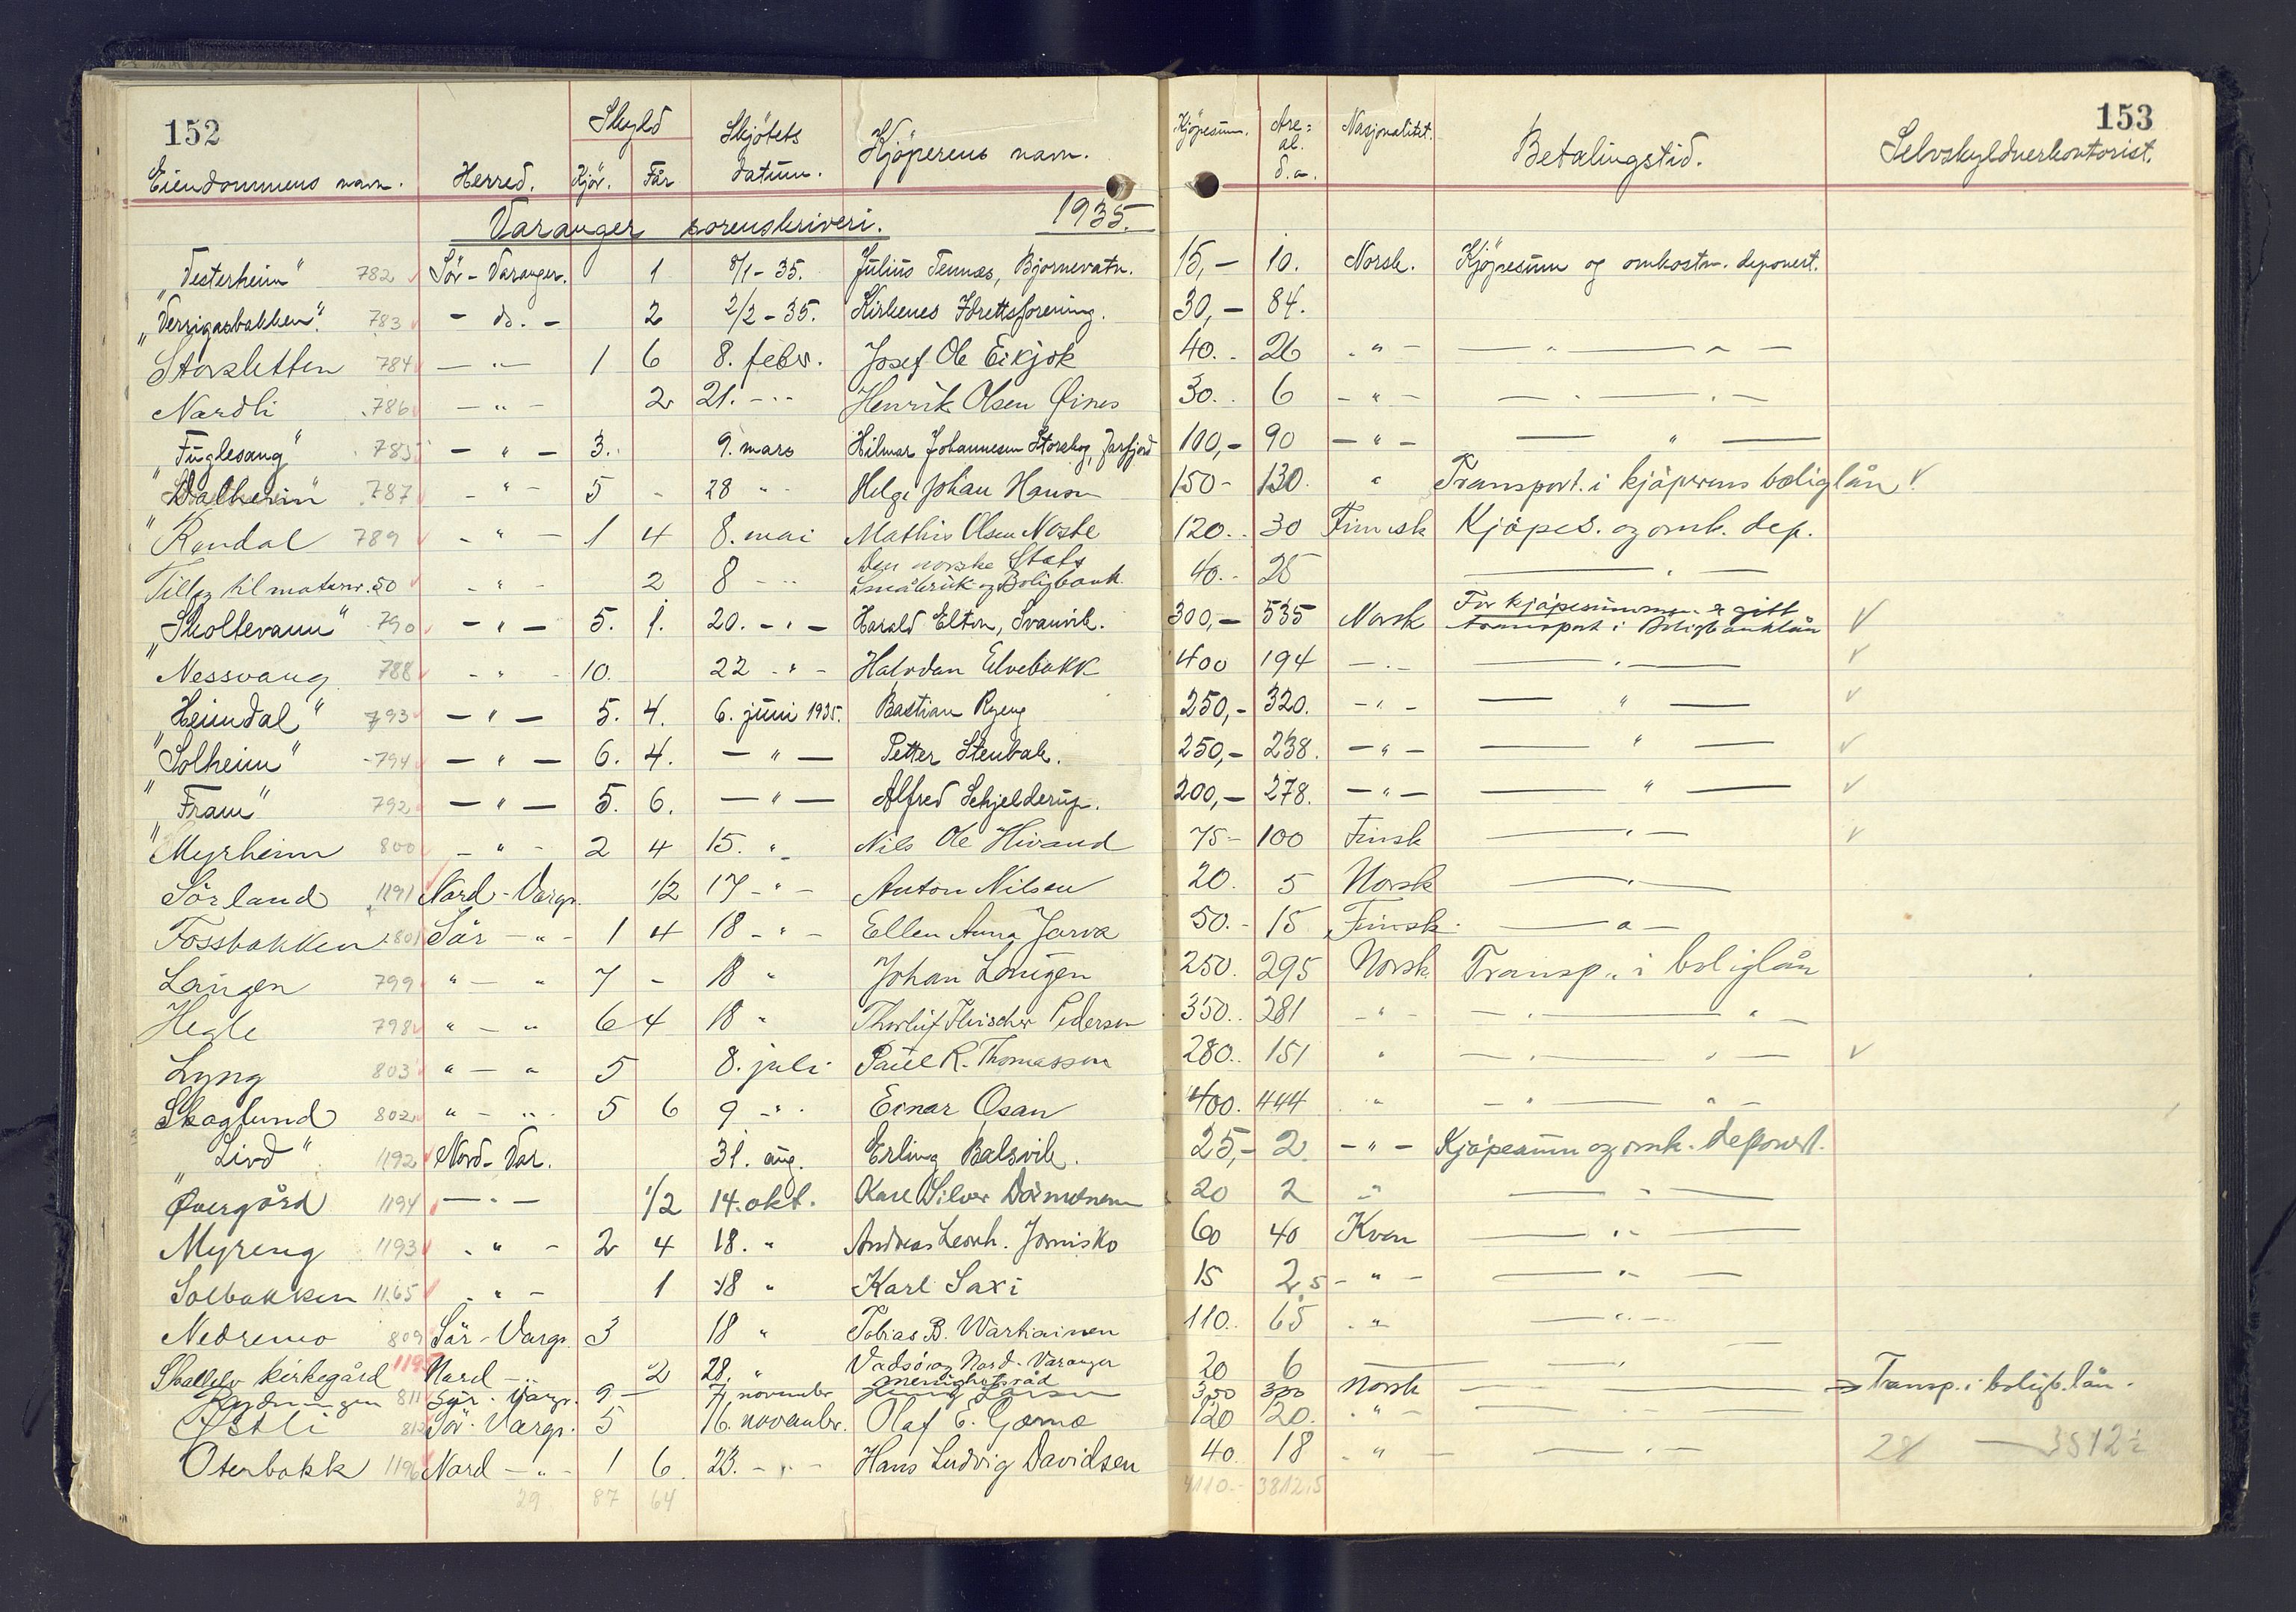 152
153
Eiendommens navn. Herred. Skyld Kjör. Får Skjötets datum. Kjöperens navn. Kjöpesum. Are=al. d.a. Nasjonalitet. Betalingstid. Selvskyldnerkautorist.
Varanger sorenskriveri. 1935.
"Vesterheim" 782 Sör-Varanger. 1 8/1-35. Julius Tennæs, Bjørnevatn. 15,- 10. Norsk. Kjöpesum og omkostn. deponert.
783 - do. - 2 2/2-35. Kirkenes Idrettsforening. 30,- 84.
Storsletten 784 - " - 1 6 8. febr. Josef Ole Eikjok 40.- 26 - " - - " - " -
Nordli 786 - " - 2 21. - " - Henrik Olsen Öines 30.. 6 - " - - " - " -
"Fuglesang" 785 - " - 3. 9. mars Hilmar Johannesen Storskog, Jarfjord 100,- 90 - " - - " -
"Dalheim" 787 - " - 5 - 28 " Helge Johan Hansen 150- 130. " Transport. i kjöperens boliglån V.
"Rendal 789 - " - 1 4 8. mai Mathis Olsen Noste 120.. 30 Finnsk Kjöpes. og omk. dep.
Tillegg til matrnr. 50 - " - 2 8 - " Den norske Stats Småbruk- og Boligbank. 40.- 25 - " -
"Skoltevann" 790 - " - 5. 1. 20. - " - Harald Elton, Svanvik. 300,- 535 Norsk For kjöpesummen er gitt transport i Boligbanklån V
Nessvang 788 - " - 10. 22 - " - Halvdan Elvebakk 400 194 - " - - " - V
"Heimdal" 793 - " - 5. 4. 6. juni 1935. Bastian Ryeng 250,- 320. - " - - " - V
"Solheim" 794 - " - 6. 4. - " - Petter Stenbak. 250,- 238. - " - - " - V
"Fram" 792 - " - 5. 6. - " - Alfred Schjelderup. 200,- 278. - " - - " - V
"Myrheim 800 - " - 2 4 15. " - Nils Ole Hivand 75- 100 Finsk - " - V
Sörland 1191 Nord-Vargr. 1/2 17 - " - Anton Nilsen 20. 5 Norsk - " -
Fossbakken 801 Sör - " - 1 4 18 - " - Ellen Anna Jarva 50.- 15 Finsk. - " -
Langen 799 " - " 7 - 18 " Johan Langen 250. 295 Norsk Transp. i boliglån
Hegle 798 " - " 6 4 18 " Thorleif Fleischer Pedersen 350.. 281 - " - - " - " -
Lyng 803 " - " 5 8. juli Paul R. Thomassen 280.. 151 " - " - " - V
Skoglund 802 " - " 5 6 9 - " Einar Osan 400. 444 " - " - " -
"Livd" 1192 Nord-Var. 31. aug. Erling Balsvik. 25,- 2 - " - Kjöpesum og omk. deponert.
Övergård 1194 - " - 1/2 14. okt. Karl Silver 20 2 - " - " -
Myreng 1193 - " - 2 4 18. " Andreas Leonh. Jornisko 60 40 Kven - " -
Solbakken 1165 - " - 1 18 " Karl Saxi 15 2,5 - " - - " -
Nedremo 809 Sör-Vargr. 3 18 " Tobias B. Wartiainen 110.. 65 - " - " -
Skallelv kirkegård 1195 Nord - " 2 28. " Vadsö og Nord-Varanger menighetsråd 20 6 - " -
Rydningen 811 Sör. Vargr. 9 - 7. november Larsen 350 300 Norsk - " - → Transp. i boligb.lån.
Östli 812 Sör. Vargr. 5 16. november. Olaf E. Gjernö 120 20. - " - - " -
Oterbakk 1196 Nord - " - 1 6 23. - " - Hans Ludvig Davidsen 40 18 - " - - " - 28 - 3512½
29 87 64 4110.- 3812,5